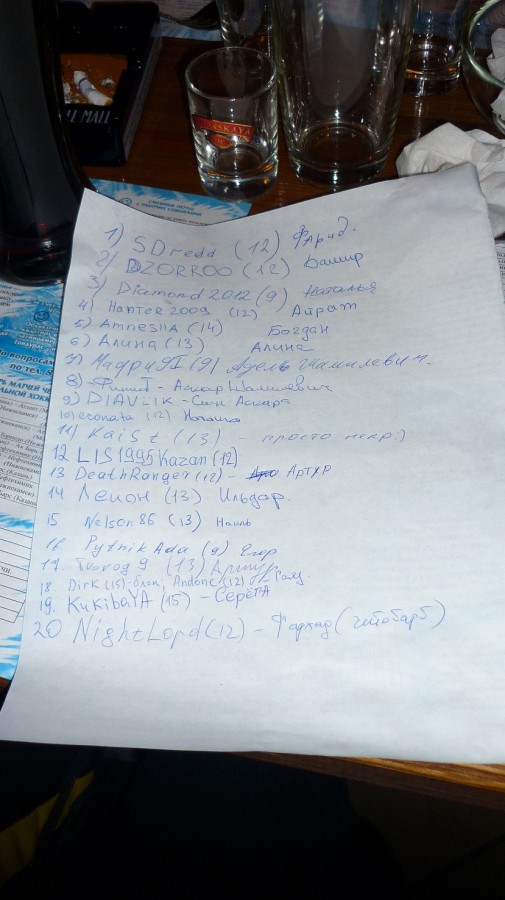 LL MALL
SKAYA
1) SDredd (12) Фарид.
2) DZORROO (12) Дамир
3) Diamond2012 (9) Наталья
4) Hanter2009 (12) Айрат
5) Amnesiia (14) Богдан
6) Алина (13) Алина
7) МадриЯГ (9) Адель Шамилевич.
8) - Аскар Шамилевич
9) DIAVLIK - Сын Аскара
10) econata (12) Наташа
11) KaiSt (13) - просто некр:)
12 LIS1995Kazan (12)
13 DeathRanger (12) - АРТУР
14 Легион (13) Ильдар.
15 Nelson86 (13) Наиль
16 PytnikAda (9) Егор
17. Tvorog9 (13) Артур
18. Dirk (15)-блок; Andone (12)
19. KukibaYA (15) - СЕРЁГА
20 NightLord (12) - Фархад (читобарб)